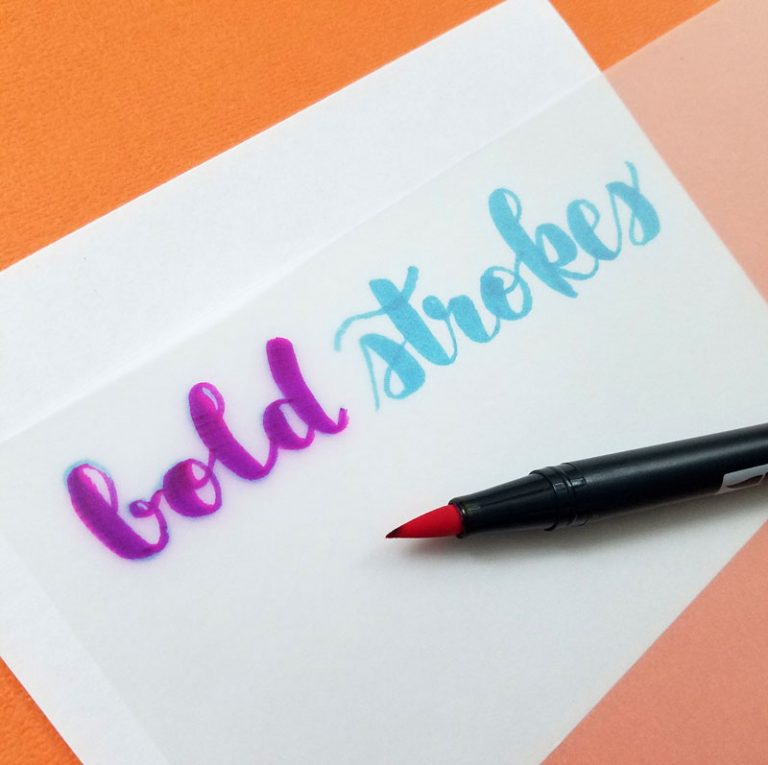 bold strokes